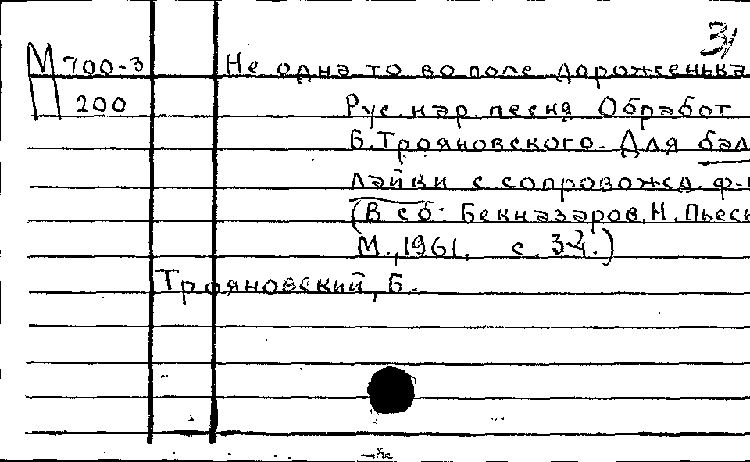 3
М 700-3 Не одна то во поле дороженька
П 200 Рус нар песня Обработ
Б.Трояновского. Для бал
лайки с сопровожд. ф-
(В сб: Бекназаров, Н. Пьесы
М., 1961. с. 3-4.)
Трояновский, Б.